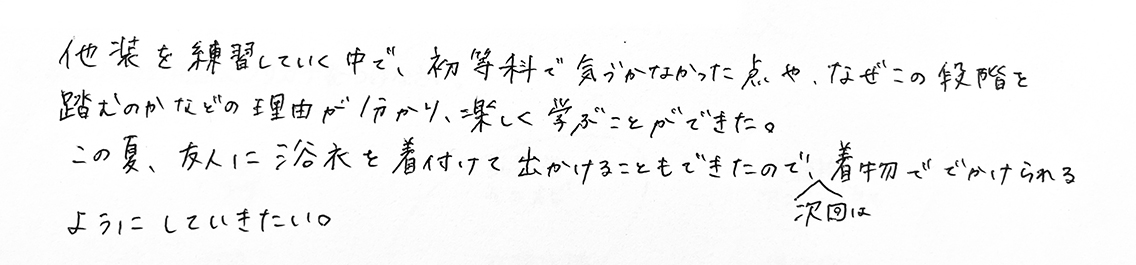 他装を練習していく中で、初等科で気づかなかった点や、なぜこの段階を
踏むのかなどの理由が分かり、楽しく学ぶことができた。
この夏、友人に浴衣を着付けて出かけることもできたので、次回は着物ででかけられる
ようにしていきたい。